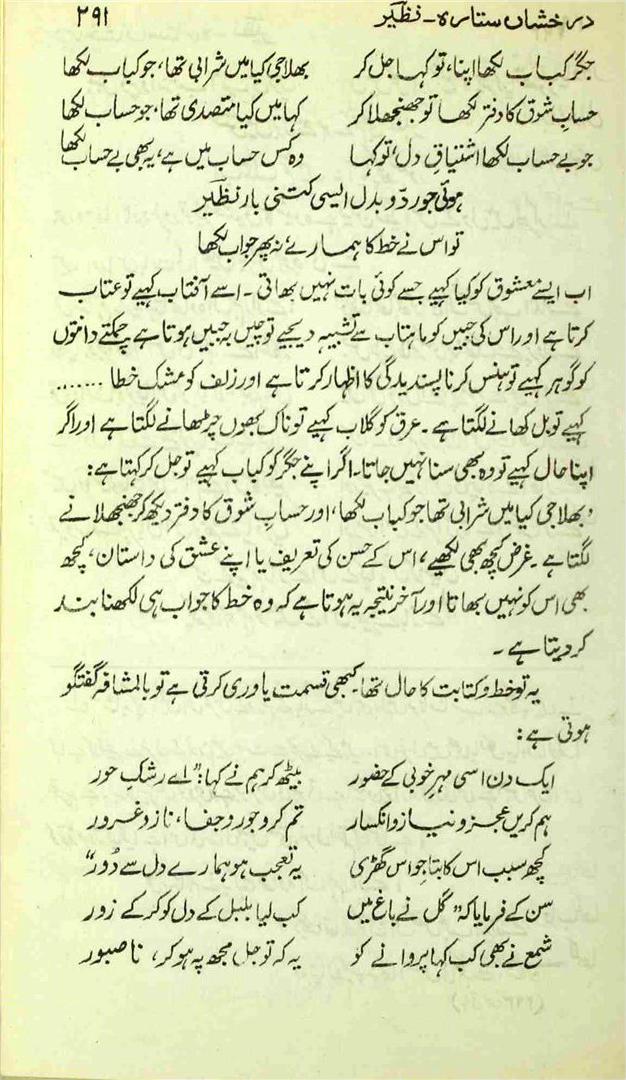 درخشاں ستارہ۔ نظیرؔ ۲۹۱
جگر کباب لکھا اپنا، تو کہا جل کر بھلا جی کیا میں شرابی تھا، جو کباب لکھا
حسابِ شوق کا دفتر لکھا تو جھنجھلا کر کہا میں کیا متصدی تھا، جو حساب لکھا
جو بے حساب لکھا اشتیاقِ دل، تو کہا وہ کس حساب میں ہے، یہ بھی بے حساب لکھا
ہوئی جو ردّ و بدل ایسی کتنی بار نظیرؔ
تو اس نے خط کا ہمارے، نہ پھر جواب لکھا
اب ایسے معشوق کو کیا کہیے جسے کوئی بات نہیں بھاتی۔ اسے آفتاب کہیے تو عتاب
کرتا ہے اور اس کی جبیں کو ماہتاب سے تشبیہ دیجیے تو چیں بہ جبیں ہوتا ہے چمکتے دانتوں
کو گوہر کہیے تو ہنس کر ناپسندیدگی کا اظہار کرتا ہے اور زلف کو مشک خطا .......
کہیے تو بل کھانے لگتا ہے۔ عرق کو گلاب کہیے تو ناک بھوں چڑھانے لگتا ہے اور اگر
اپنا حال کہیے تو وہ بھی سنا نہیں جاتا۔ اگر اپنے جگر کو کباب کہیے تو جل کر کہتا ہے:
'بھلا جی کیا میں شرابی تھا جو کباب لکھا، اور حسابِ شوق کا دفتر دیکھ کر جھنجھلانے
لگتا ہے۔ غرض کچھ بھی لکھیے، اس کے حسن کی تعریف یا اپنے عشق کی داستان، کچھ
بھی اس کو نہیں بھاتا اور آخر نتیجہ یہ ہوتا ہے کہ وہ خط کا جواب ہی لکھنا بند
کر دیتا ہے۔
یہ تو خط و کتابت کا حال تھا۔ کبھی قسمت یاوری کرتی ہے تو بالمشافہ گفتگو
ہوتی ہے:
ایک دن اسی مہرِ خوبی کے حضور بیٹھ کر ہم نے کہا: "اے رشکِ حور
ہم کریں عجز و نیاز و انکسار تم کرو جور و جفا، ناز و غرور
کچھ سبب اس کا بتا جو اس گھڑی یہ تعجب ہو ہمارے دل سے دُور"
سن کے فرمایا کہ "گل نے باغ میں کب لیا بلبل کے دل کو کر کے زور
شمع نے بھی کب کہا پروانے کو یہ کہ تو جل مجھ پہ ہو کر، ناصبور